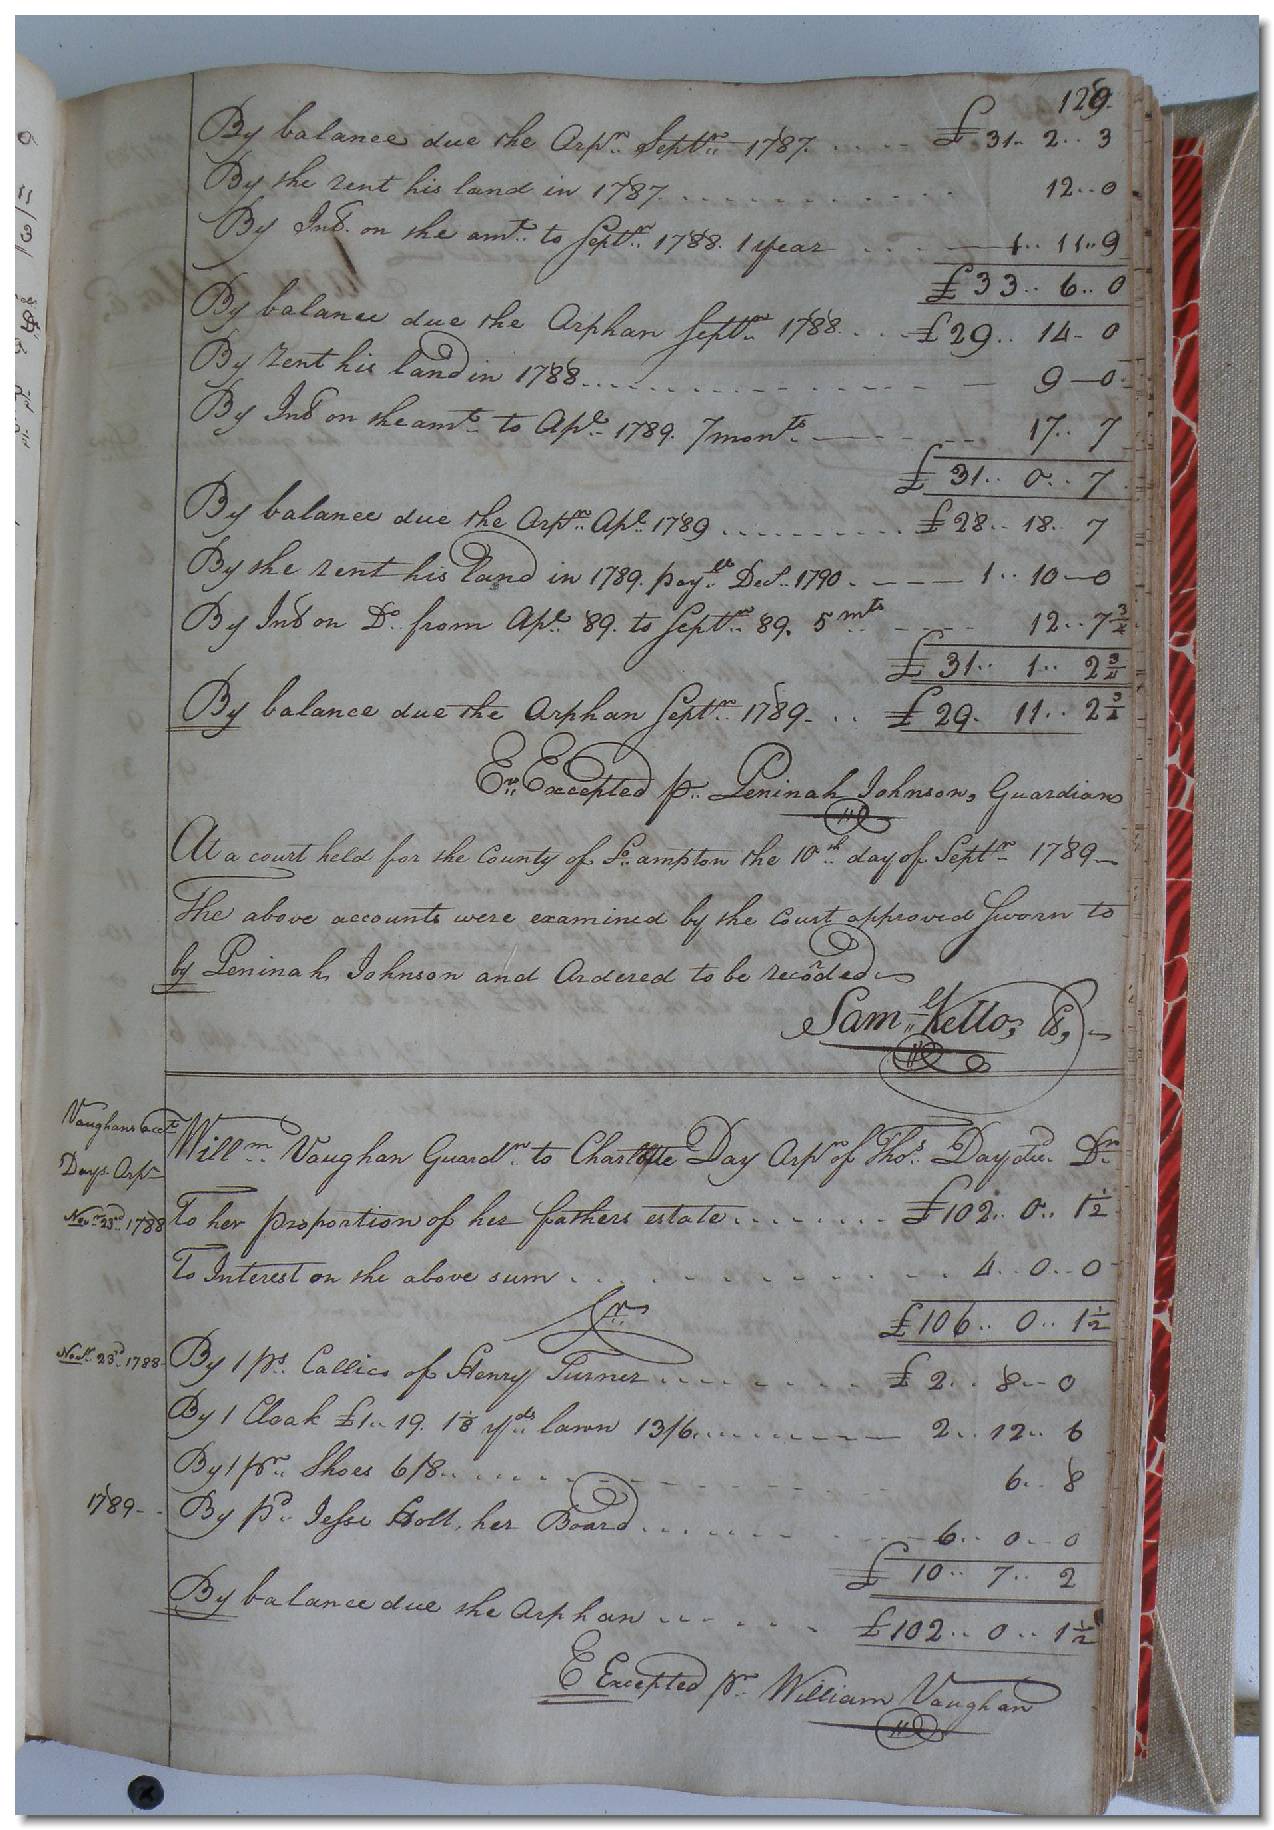 129.
By balance due the Orpn. Septr. 1787. .... £31.. 2.. 3
By the rent his land in 1787. .......... 12..0
By Int. on the amt. to Septr. 1788. 1 year .... 1.. 11..9
£33.. 6.. 0
By balance due the Orphan Septr. 1788. ... £29.. 14.. 0
By rent his land in 1788 ........... 9—0.
By Int on the amt. to Apl. 1789. 7 monts. —— 17.. 7
£31.. 0.. 7
By balance due the Orpn. Apl. 1789 ......... £28.. 18.. 7
By the rent his land in 1789. payle. Decr. 1790. ---- 1.. 10—0
By Int on Do. from Apl. 89. to Septr. 89. 5 mts .... 12.. 7¾
£31.. 1.. 2¾
By balance due the Orphan Septr. 1789. .. £29. 11.. 2¾
Er. Excepted p. Peninah Johnson, Guardian
At a court held for the County of So.ampton the 10th day of Septr. 1789—
The above accounts were examined by the Court approved Sworn to
by Peninah Johnson and Ordered to be recorded—
Saml. Kello, C,
Vaughans acct.
Days Orpn.
Willm. Vaughan Guardn. to Charlotte Day Orpn of Thos. Day Dr.
Novr. 23d. 1788 To her proportion of her fathers estate ....... £102.. 0.. 1½
To Interest on the above sum .......... 4.. 0..0
Cr. £106.. 0.. 1½
Novr. 23d. 1788 By 1 ps. Callico of Henry Turner ........ £2.. 8..0
By 1 Cloak £1..19. 1⅛ yds. lawn 13/6. ........ 2.. 12.. 6
By 1 pr. Shoes 6/8 ........... 6.. 8
1789— By pd. Jesse Holt, her Board ....... 6.. 0.. 0
£10.. 7.. 2
By balance due the Orphan ...... £102.. 0.. 1½
E Excepted pr. William Vaughan